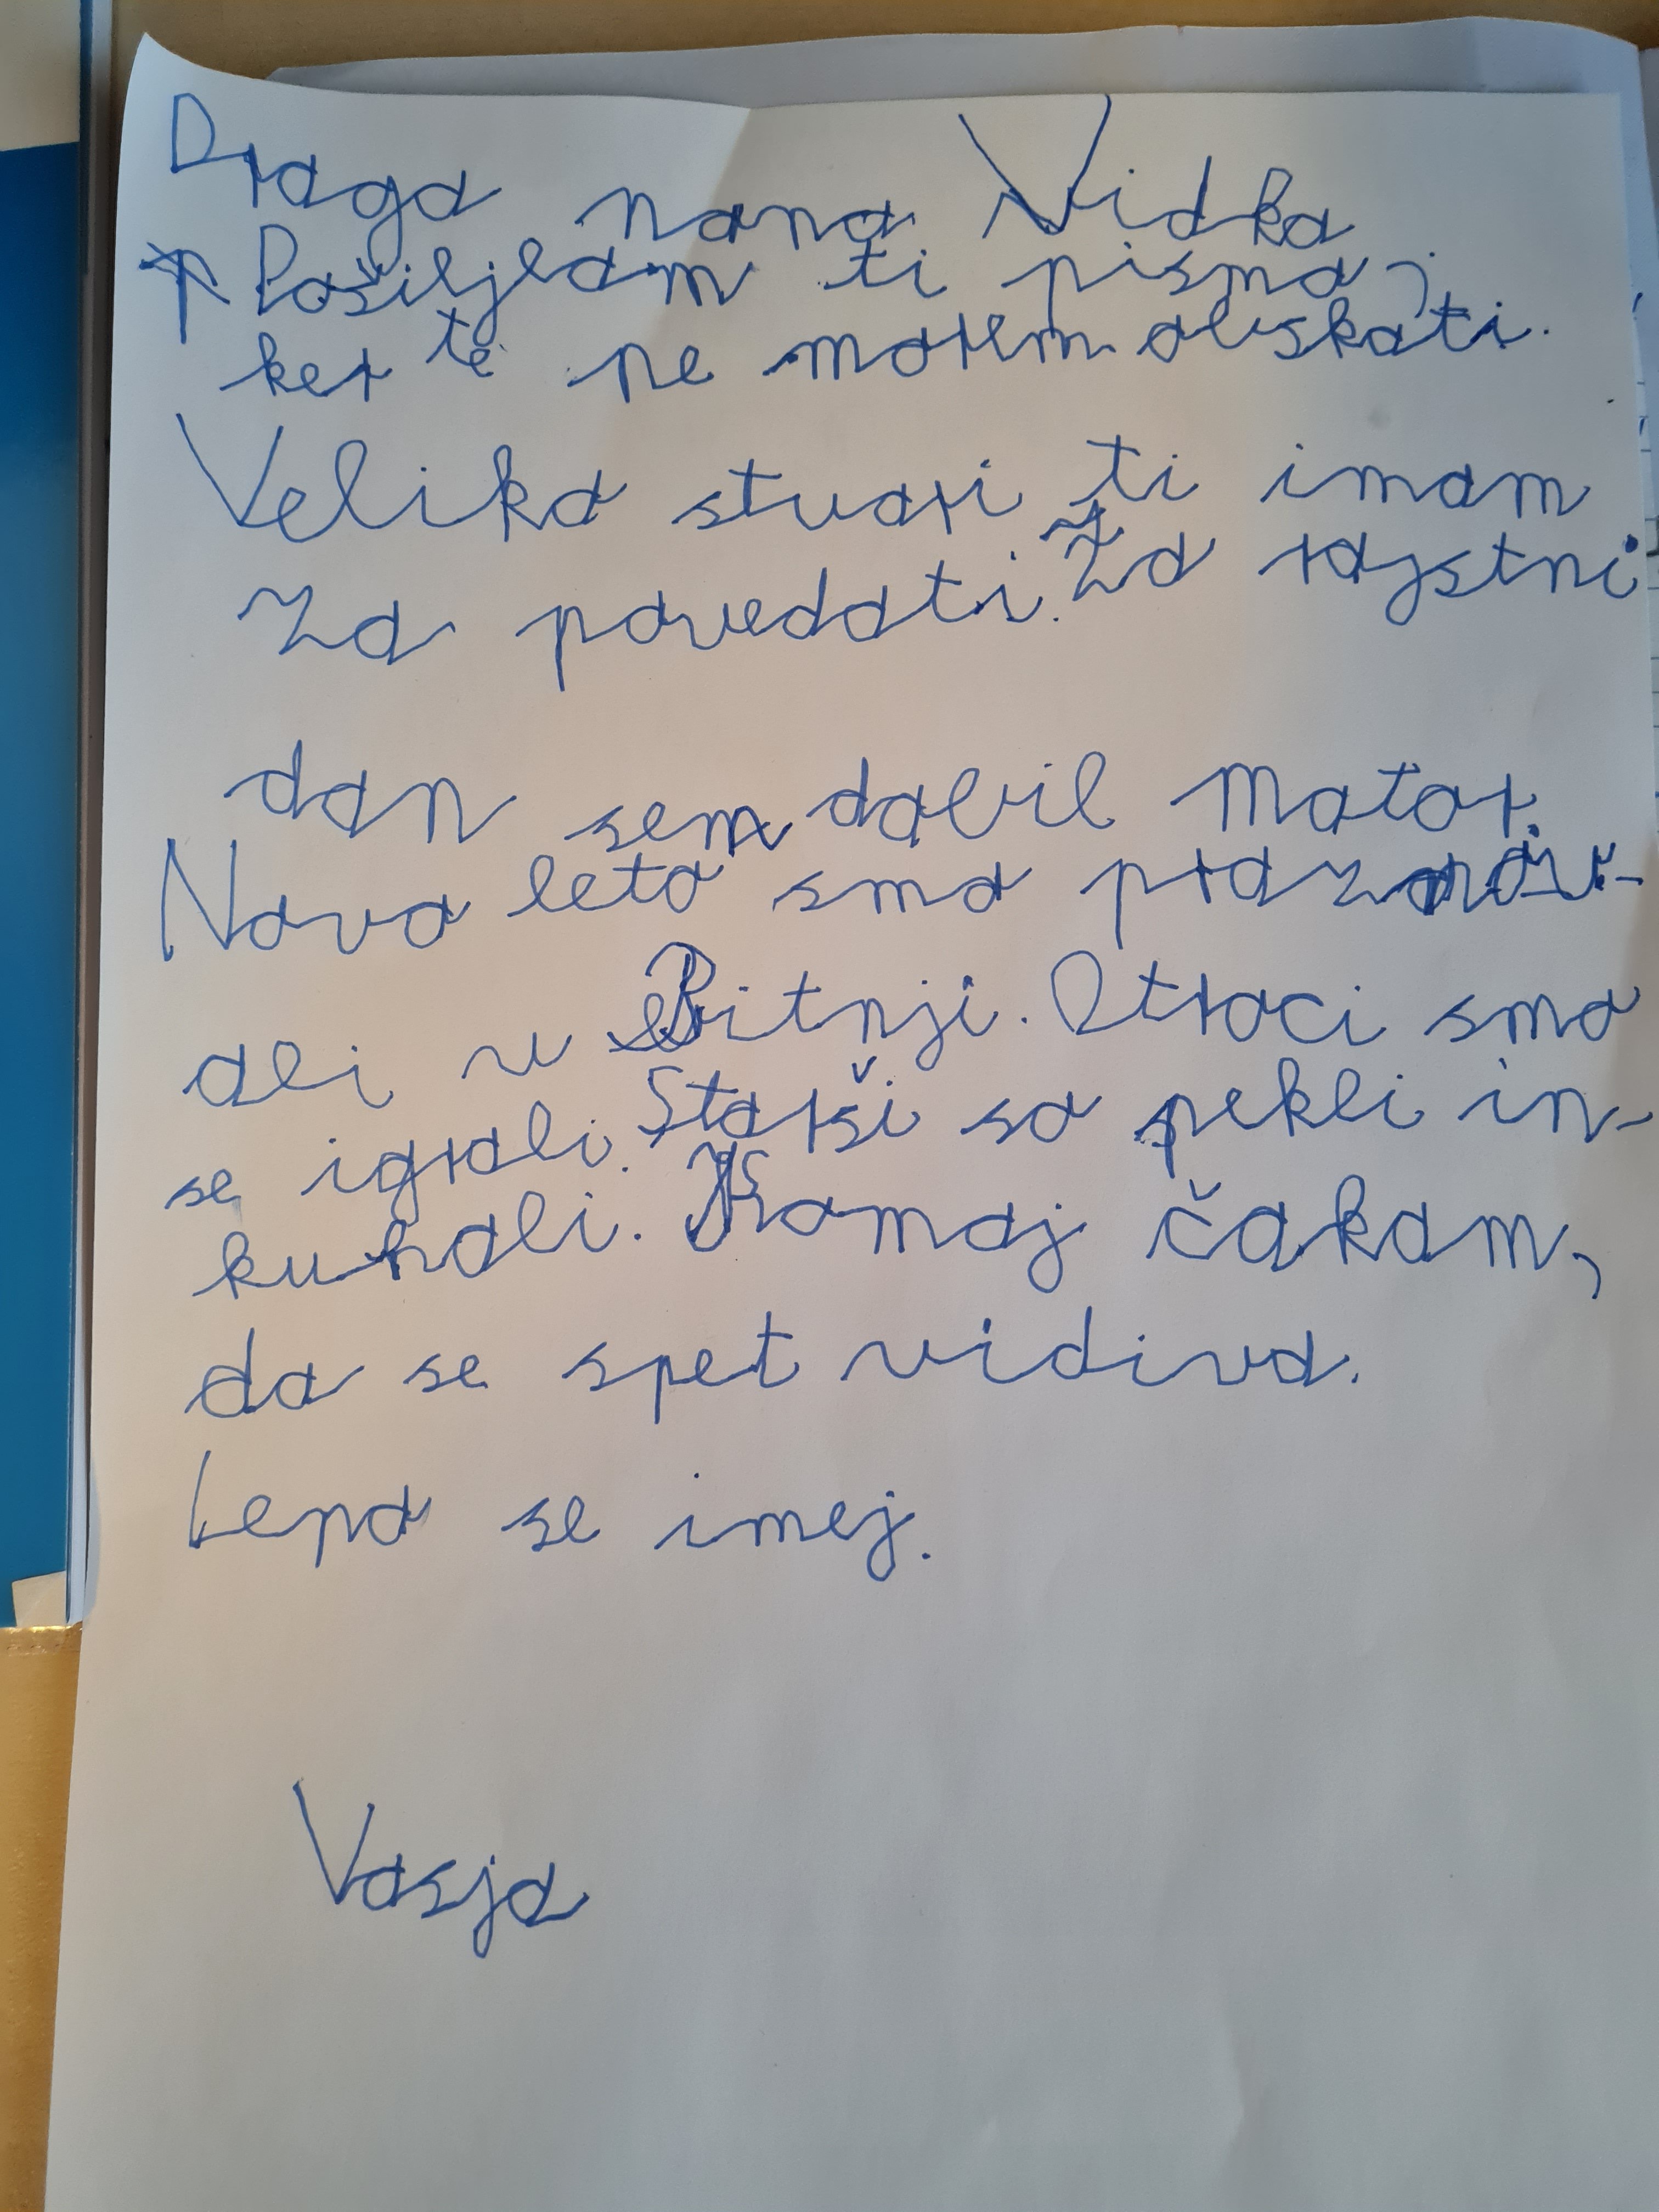 Draga nana Vidka
Pošiljam ti pismo,
ker te ne morem obiskati.
Veliko stvari ti imam
za povedati. Za rojstni
dan sem dobil motor.
Novo leto smo praznov-
ali v Bitnji. Otroci smo
se igrali. Starši so pekli in
kuhali. Komaj čakam,
da se spet vidiva.
Lepo se imej.
Vasja